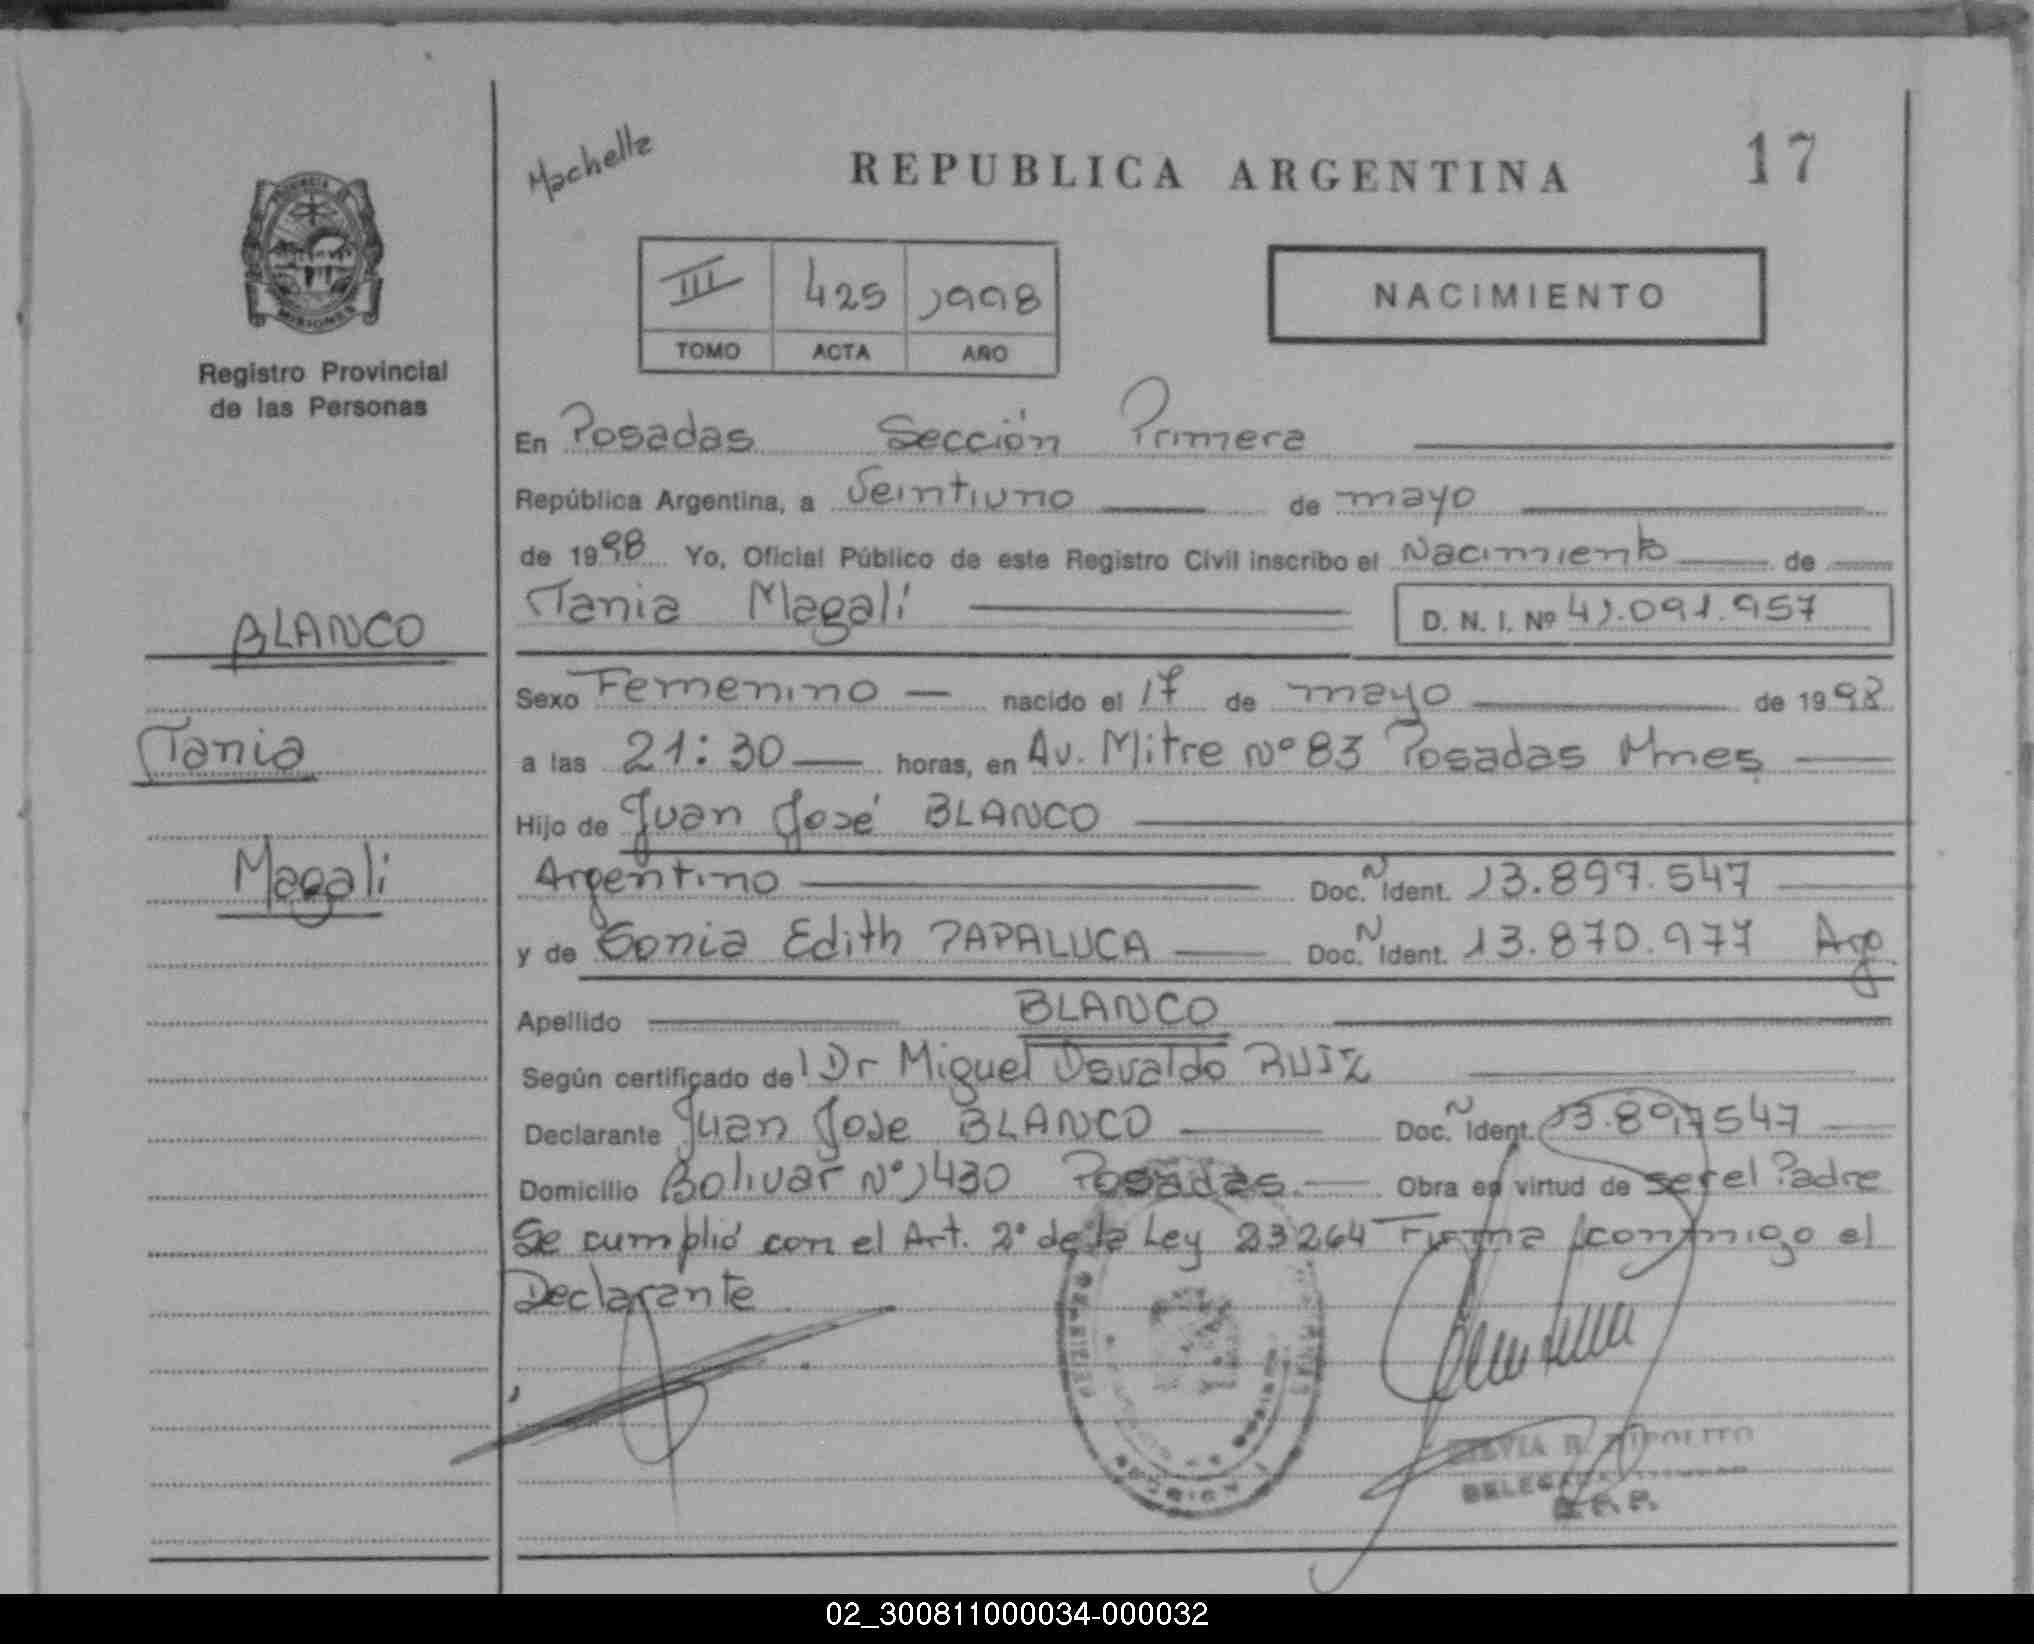 Machelle
REPUBLICA ARGENTINA
17
PROVINCIA DE
MISIONES
Registro Provincial
de las Personas
III 425 1998
TOMO ACTA AÑO
NACIMIENTO
En Posadas Sección Primera
República Argentina, a Veintiuno de mayo
de 1998 Yo, Oficial Público de este Registro Civil inscribo el Nacimiento de
Tania Magalí D. N. I. Nº 41.091.957
BLANCO
Tania
Magali
Sexo Femenino nacido el 17 de mayo de 1998
a las 21:30 horas, en Av. Mitre Nº 83 Posadas Mnes
Hijo de Juan José BLANCO
Argentino Doc. N Ident. 13.897.547
y de Sonia Edith PAPALUCA Doc. N Ident. 13.870.977 Arg
Apellido BLANCO
Según certificado del Dr Miguel Osvaldo RUIZ
Declarante Juan Jose BLANCO Doc. N Ident. 13.897547
Domicilio Bolivar Nº 1430 Posadas Obra en virtud de ser el Padre
Se cumplió con el Art. 2º de la Ley 23264 Firma conmigo el
Declarante
SILVIA R. HIPOLITO
R. P. P.
02_300811000034-000032